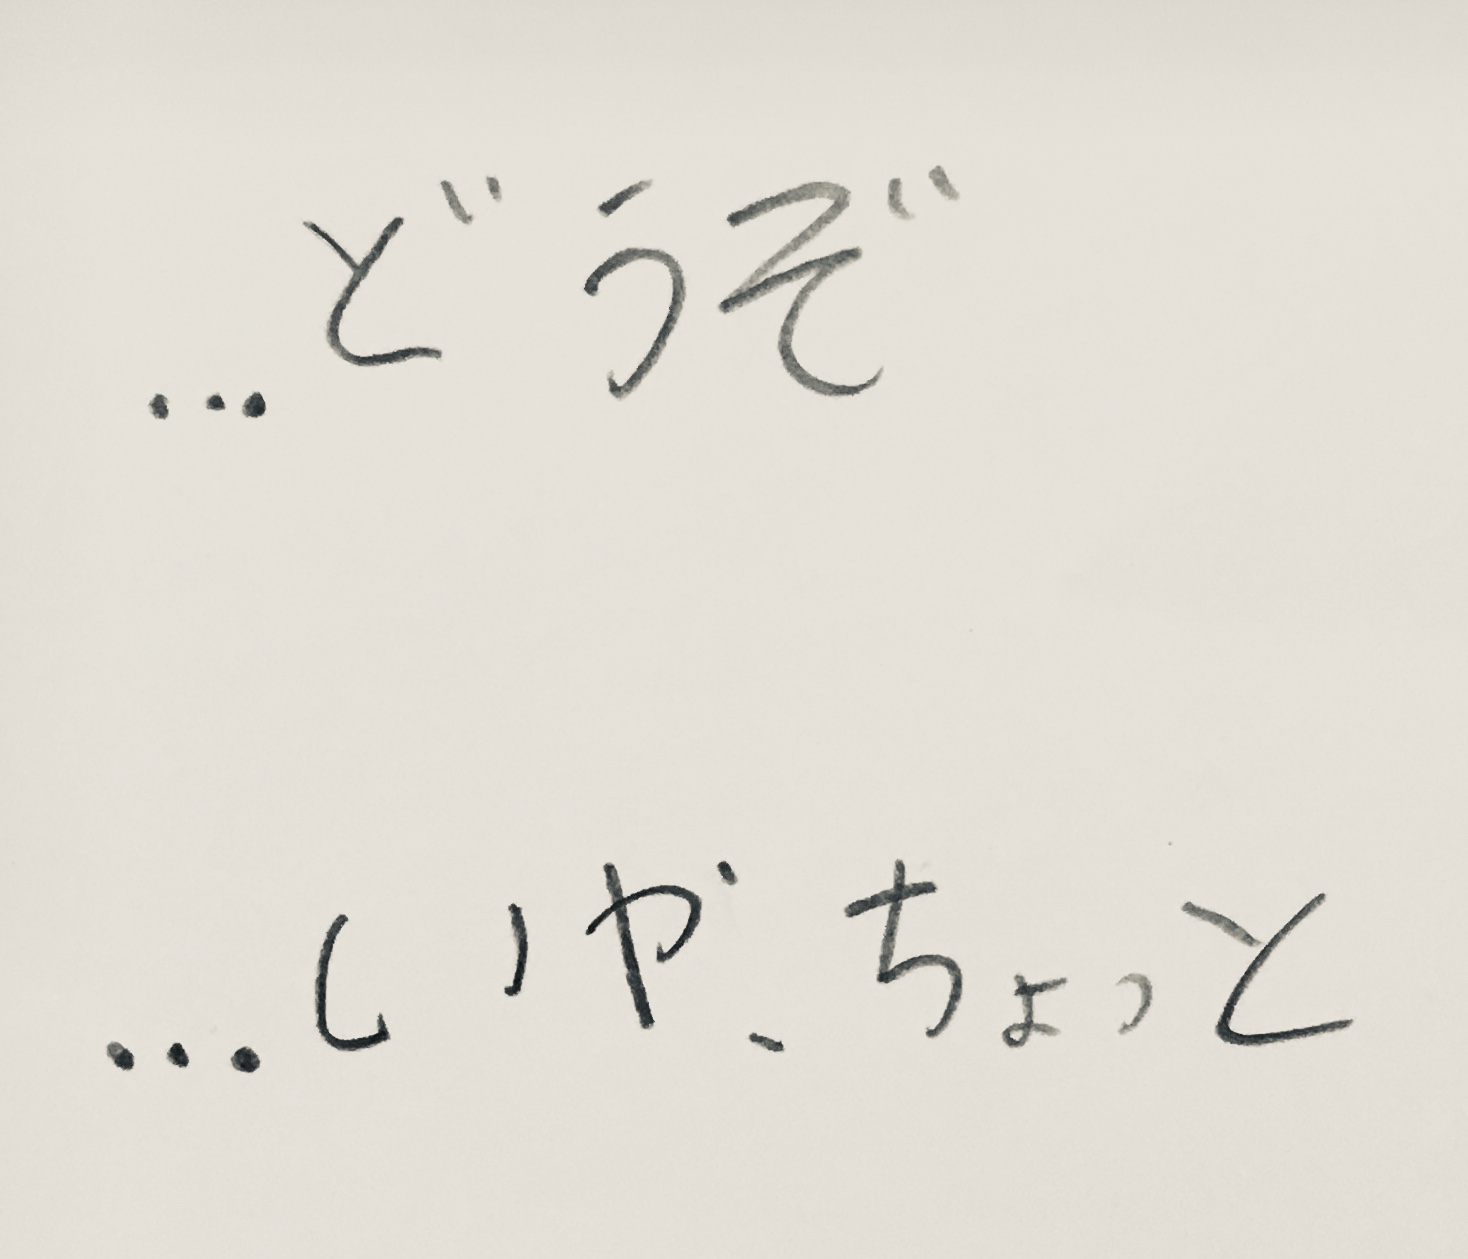 ...どうぞ
...いや、ちょっと